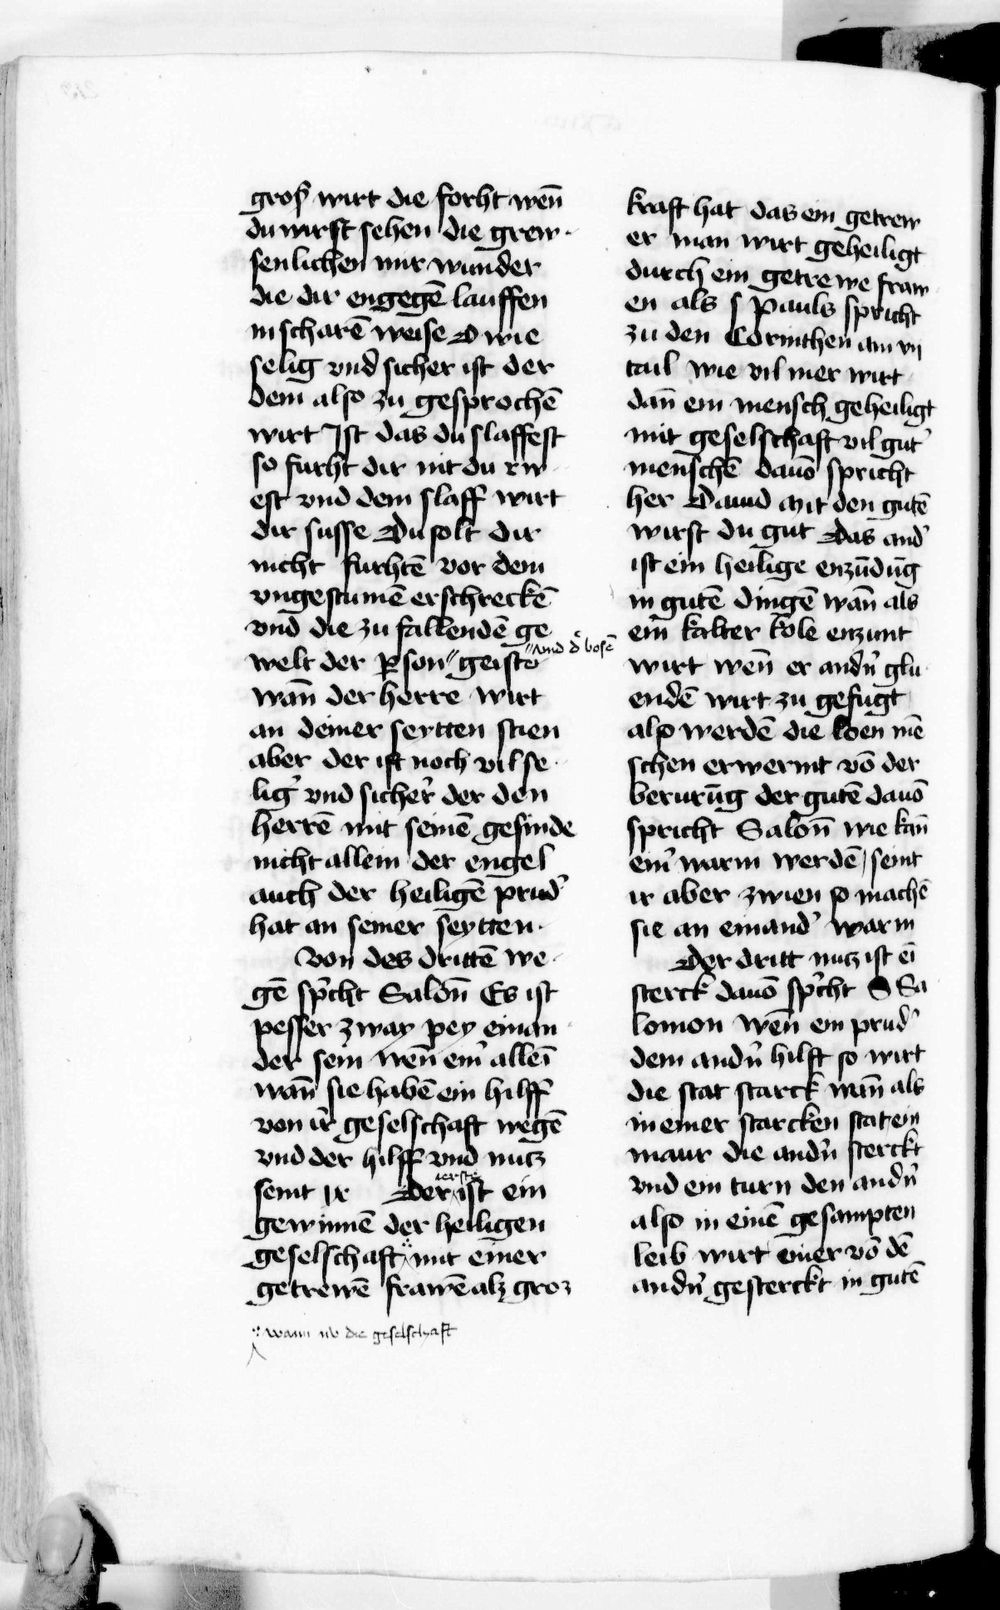 groß wirt die forht wen̄
du wirst sehen die grew-
senlichen mir wunder
die dir engegē lauffen
in scharē weise O wie
selig vnd sicher ist der
dem also zu gesprochē
wirt Ist das du slaffest
so furht dir nit du rw-
est vnd dem slaff wirt
dir susse Du solt dir
nicht furhtē vor dem
vngestumē erschreckē
vnd die zu fallendē ge
welt der ꝑson geiste
vnd d bosē
wan̄ der herre wirt
an deiner seytten stien
aber der ist noch vil se-
lig' vnd sicher' der den
herrē mit seinē gesinde
nicht allein der engel
auch der heiligē prud'
hat an seiner seytten.
Von des drittē we-
gē sp'cht Salon̄ Es ist
pesser zway pey einan-
der sein wen̄ ein' alleī
wan̄ sie habē ein hilff
von ir' geselschaft wegē
vnd der hilff vnd nutz
seint ix Der erste ist ein
gewinnē der heiligen
geselschaft mit einer
getrewē frawē alz groz
wann ub die geselschaft
kraft hat das ein getrew
er man wirt geheiligt
durch ein getrewe fraw-
en als s Pauls spricht
zu den Corinthen am vij
tail wie vil mer wirt
dan̄ ein mensch geheiligt
mit geselschaft vil gut'
menschē dauō spricht
her Dauid Mit den gutē
wirst du gut Das and'
ist ein heilige enzūdūg
in gutē dingē wan̄ als
ein' kalter kole enzunt
wirt wen̄ er andn̄ glu-
endē wirt zu gefugt
also werdē die loen mē
schen erwermt vō der
berurūg der gutē dauō
spricht Salon̄ wie kan̄
ein' warm werdē seint
ir aber zwien so machē
sie an einand' warm
Der dritt nutz ist eī
sterck dauō sp'cht S Sa
lomon Wen̄ ein prud'
dem andn̄ hilft so wirt
die stat starck wan̄ als
in einer starcken stat ein
maur die andn̄ sterckt
vnd ein turn den andn̄
also in einē gesampten
leib wirt einer vō dē
andn̄ gesterckt in gutē